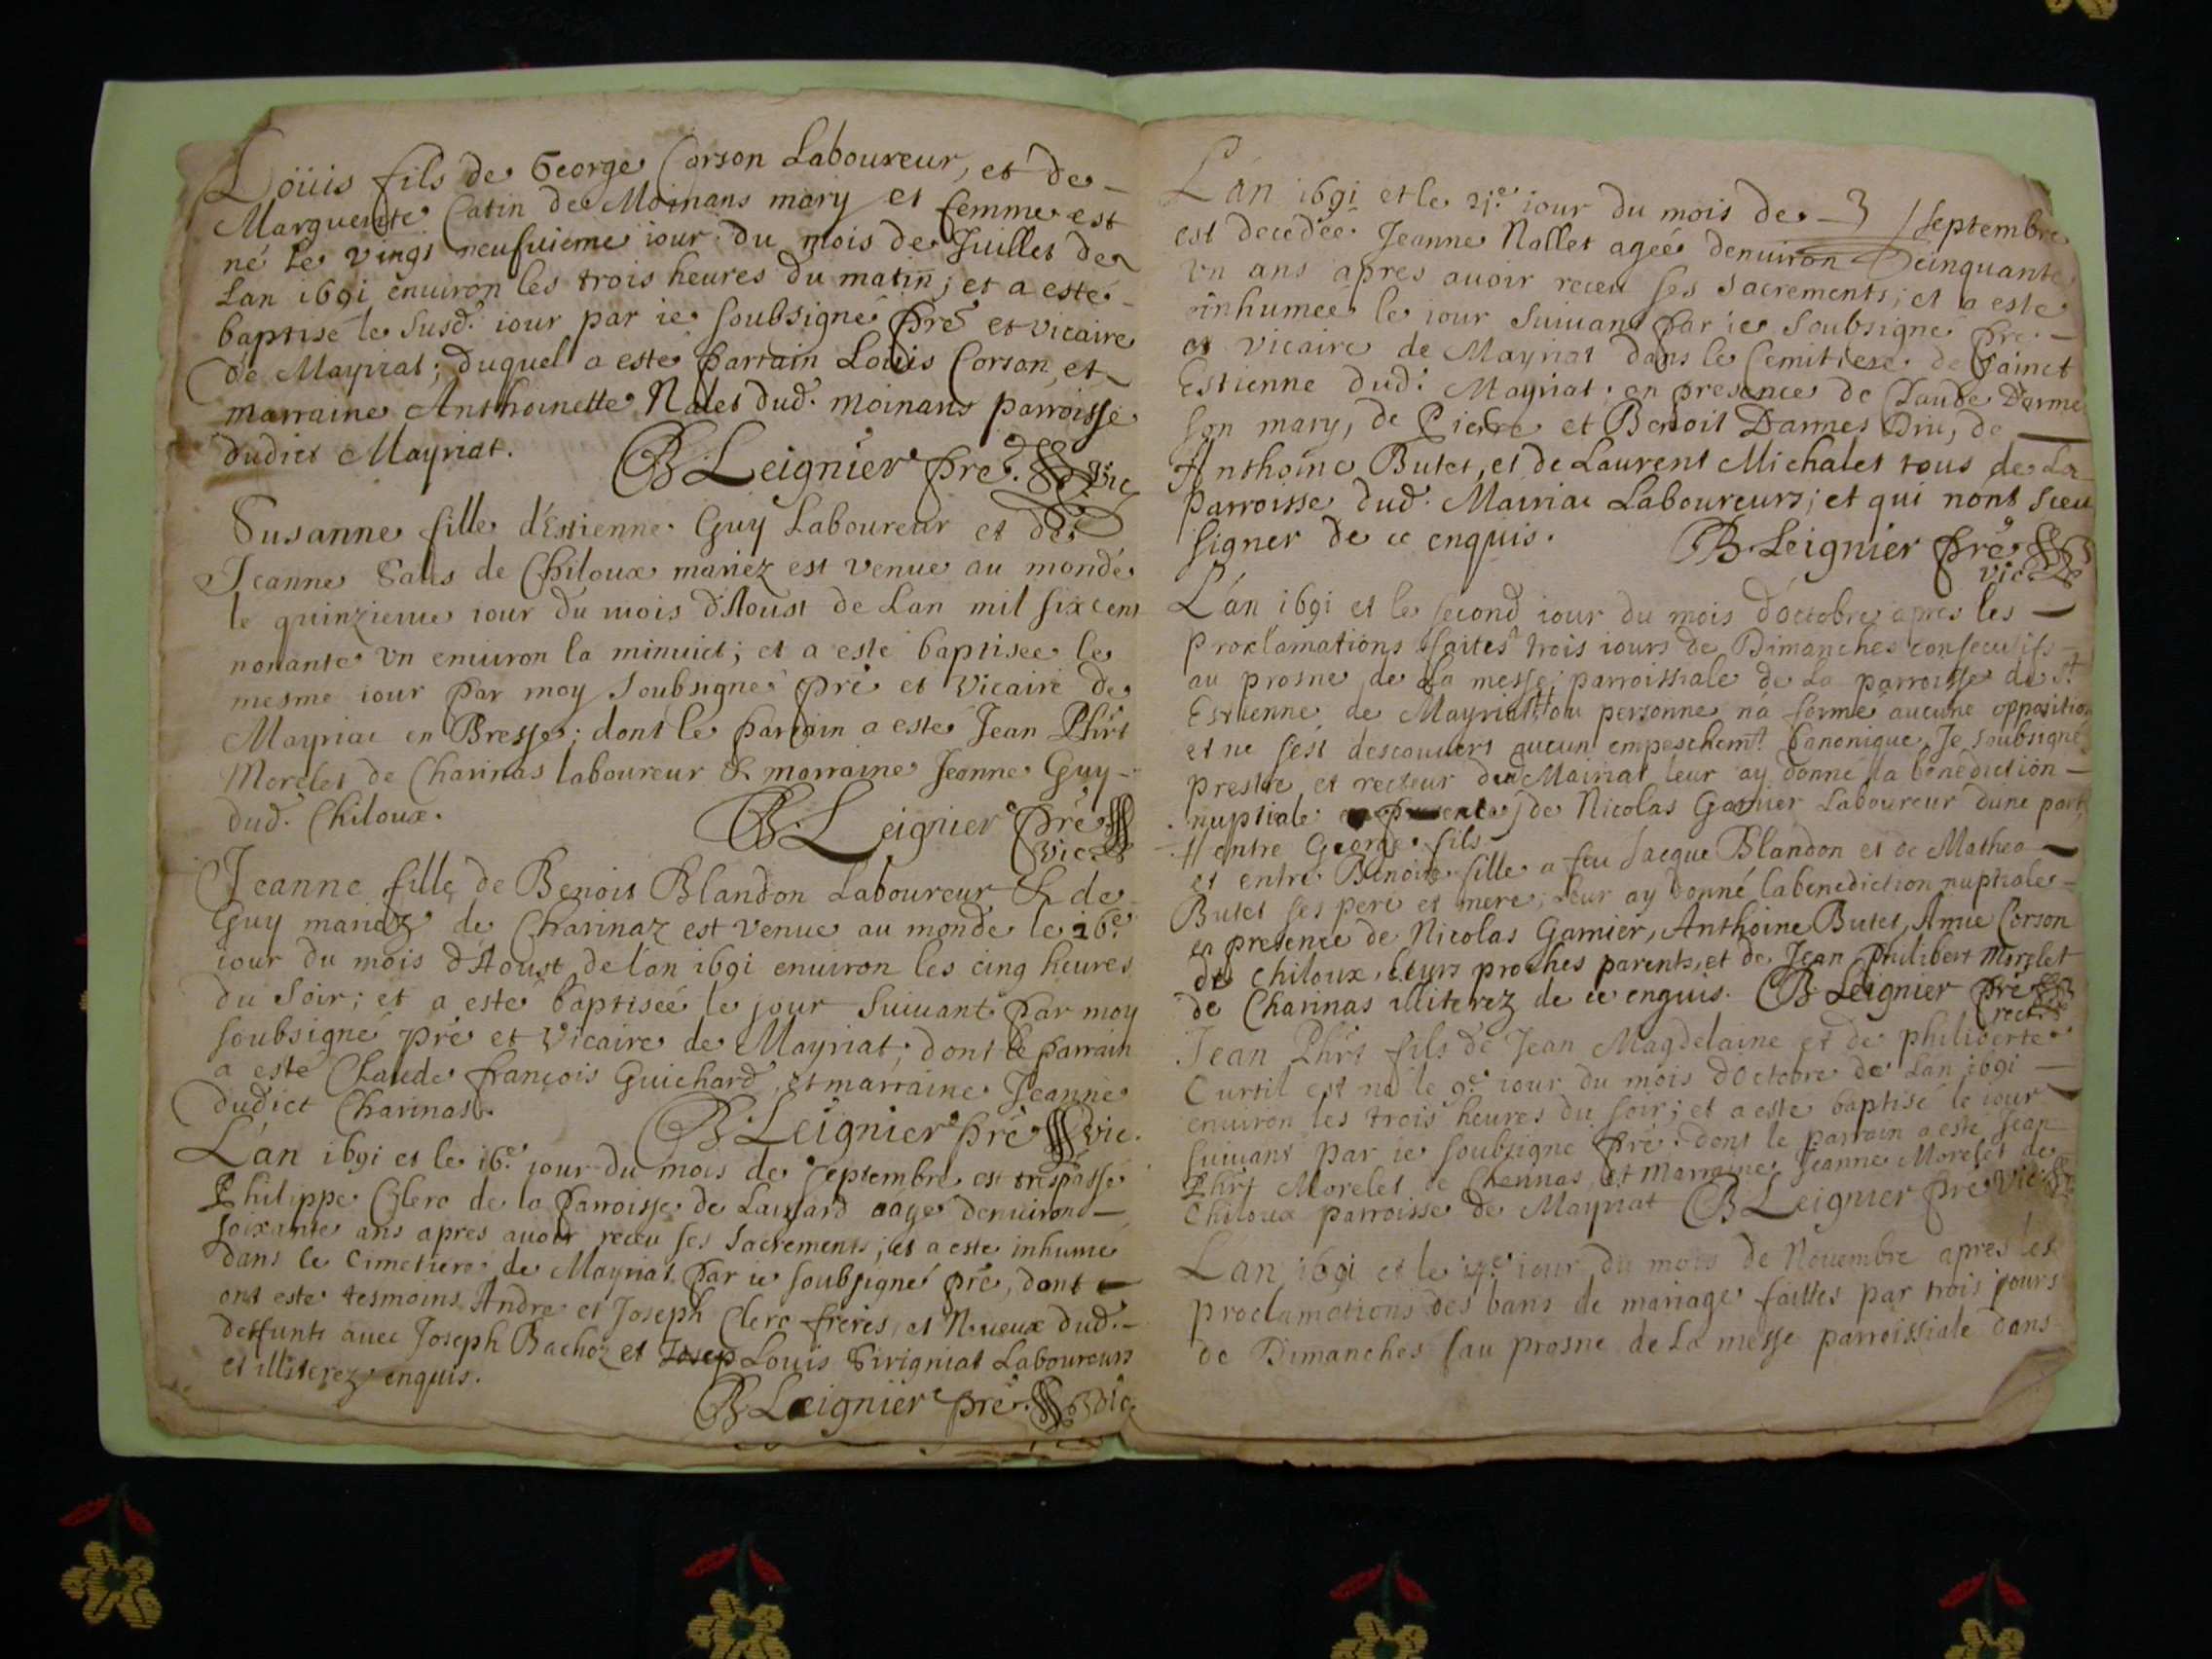 Loüis fils de George Corson Laboureur, et de
Marguerite Catin de Moinans mary et femme est
né le vingt neufuieme iour du mois de Juillet de
Lan 1691 enuiron les trois heures du matin; et a esté
baptisé le susd. iour par ie soubsigné pre et vicaire
de Mayriat; duquel a este parrain Louis Corson et
marraine Anthoinette Nalet dud. moinans parroisse
dudict Mayriat.
B. Leignier pre. vic
Susanne fille d'Estienne Guy Laboureur et de
Jeanne de Chiloux mariez est venue au monde
le quinzieme iour du mois d'Aoust de Lan mil six cens
nonante vn enuiron la minuict; et a esté baptisee le
mesme iour par moy soubsigné pre et vicaire de
Mayriac en Bresse; dont le parrain a esté Jean Phirt
Morelet de Charinas laboureur & marraine Jeanne Guy
dud. Chiloux.
B. Leignier pre
vic.
Jeanne fille de Benoit Blandon Laboureur & de
Guy mariez de Charinaz est venue au monde le 26e
iour du mois d'Aoust de l'an 1691 enuiron les cinq heures
du soir; et a esté baptiseé le jour suiuant par moy
soubsigné pre et vicaire de Mayriat; dont le parrain
a esté Claude françois Guichard, et marraine Jeanne
dudict Charinas.
B. Leignier pre vic.
L'an 1691 et le 16e iour du mois de septembre est trespassé
Philippe Clerc de la parroisse de aagé denuiron
soixante ans apres auoir receu ses sacrements; et a este inhumé
dans le cimetiere de Mayriat par ie soubsigné pre, dont
ont este tesmoins André et Joseph Clerc freres, et Neueux dud.
deffunt auec Joseph Bachoz et Josep Louis Sirigniat Laboureurs
et illiterez enquis.
B. Leignier pre. vic.
L'an 1691 et le 21e iour du mois de septembre
est decedée Jeanne Nallet ageé denuiron cinquante
vn ans apres auoir receu ses sacrements; et a esté
inhumee le iour suiuant par ie soubsigné pre
et vicaire de Mayriat dans le Cemitiere de sainct
Estienne dud. Mayriat. en presence de Claude Darme
son mary, de Pierre et Benoit Darmes de
Anthoine Butet, et de Laurent Michalet tous de La
parroisse dud. Mairiac Laboureurs; et qui nont sceu
signer de ce enquis.
B. Leignier pre
vic.
L'an 1691 et le second iour du mois d'octobre apres les
proclamations faites trois iours de Dimanches consecutifs
au prosne de La messe parroissiale de La parroisse de St
Estienne de Mayriat; ou personne na formé aucune opposition
et ne s'est descouuert aucun empeschemt Canonique, Je soubsigné
prestre et recteur dud Mairiat leur ay donné la benediction
nuptiale en presence de Nicolas Garnier Laboureur dune part
entre George fils
et entre Benoite fille a feu Jacque Blandon et de Mathea
Butet ses pere et mere; leur ay donné la benediction nuptiale
en presence de Nicolas Garnier, Anthoine Butet, Amie Corson
de Chiloux, leurs proches parents, et de Jean Philibert Morelet
de Charinas illiterez de ce enquis. B. Leignier pre
rect.
Jean Phirt fils de Jean Magdelaine et de philiberte
Curtil est né le 9e iour du mois d'Octobre de Lan 1691
enuiron les trois heures du soir; et a esté baptisé le iour
suiuant par ie soubsigné pre. dont le parrain a esté Jean
Phirt Morelet de Charinas, et Marraine Jeanne Morelet de
Chiloux parroisse de Mayriat B. Leignier pre vic
L'an 1691 et le iour du mois de Nouembre apres les
proclamations des bans de mariage faittes par trois jours
de Dimanches au prosne de La messe parroissiale dans